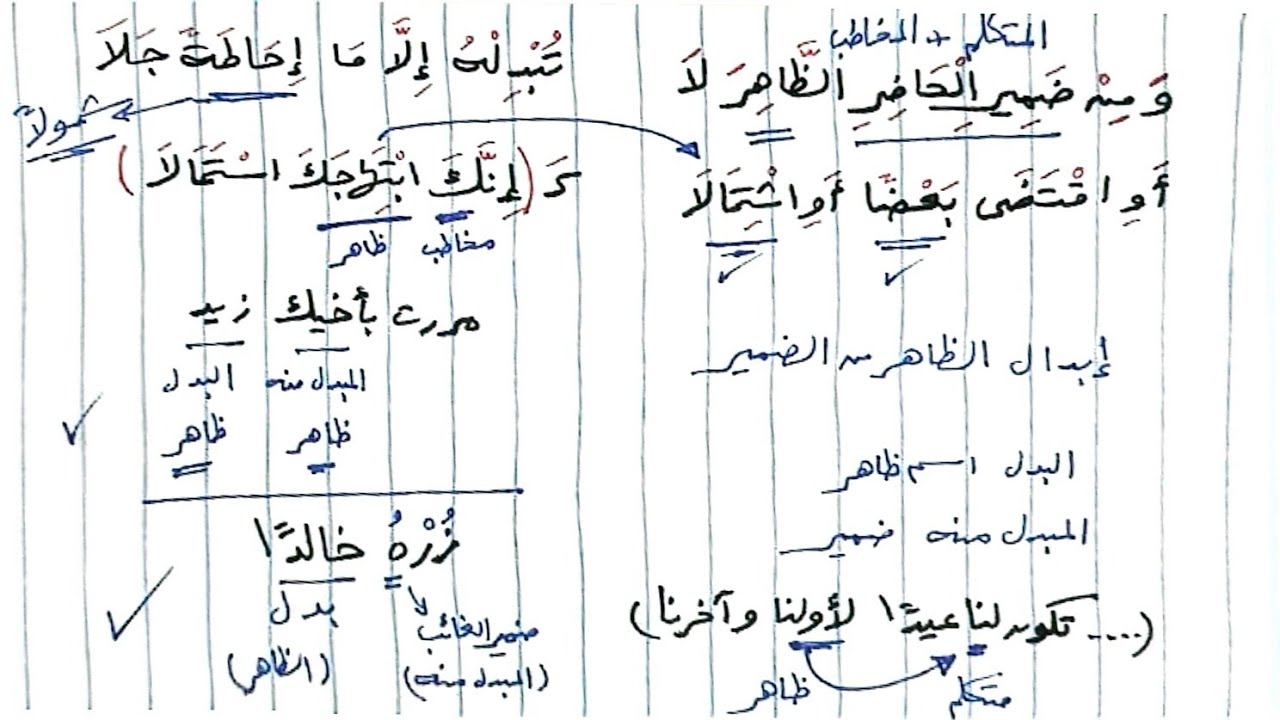 المتكلم + المخاطب
وَمِنْ ضَمِيرِ الْحَاضِرِ الظَّاهِرَ لَا
تُبْدِلْهُ إِلَّا مَا إِحَاطَةً جَلَا
شمولاً
أَوِ اقْتَضَى بَعْضًا أَوِ اشْتِمَالَا
كَـ(إِنَّكَ ابْتِهَاجَكَ اسْتَمَالَا)
مخاطب ظاهر
إبدال الظاهر من الضمير
البدل اسم ظاهر
المبدل منه ضمير
(.... تكون لنا عيدًا لأولنا وآخرنا)
متكلم ظاهر
مررت بأخيك زيد
المبدل منه البدل
ظاهر ظاهر
زُرْهُ خالدًا
ضمير الغائب بدل
(المبدل منه) (الظاهر)